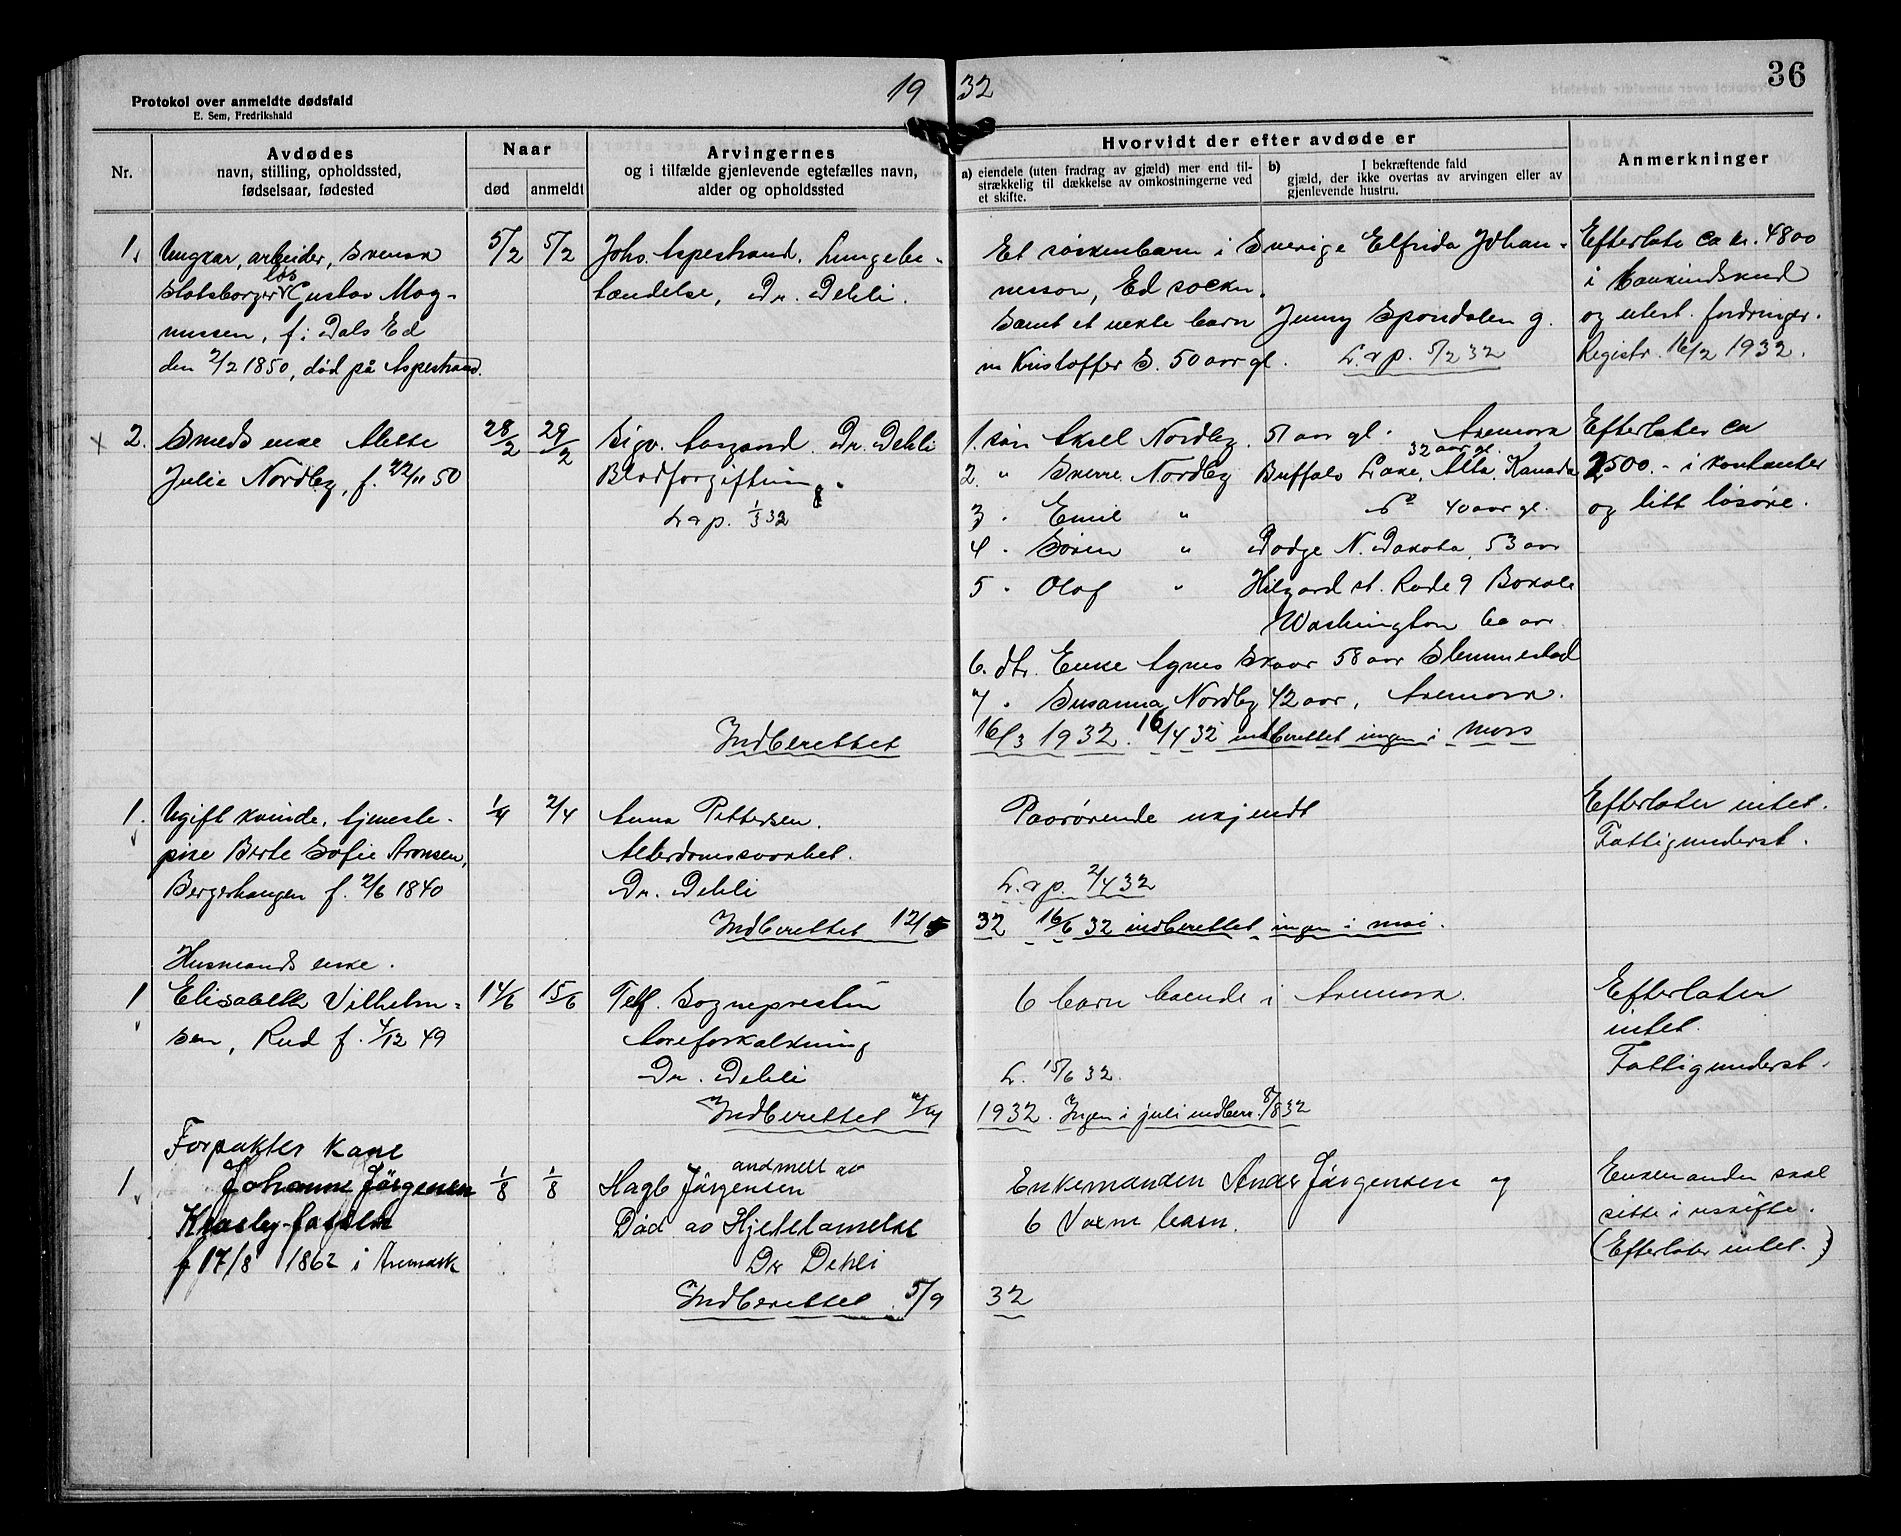 19 32
36
Protokol over anmeldte dødsfald
E. Sem, Fredrikshald
Nr.
Avdødes
navn, stilling, opholdssted,
fødselsaar, fødested
Naar
død
anmeldt
Arvingernes
og i tilfælde gjenlevende egtefælles navn,
alder og opholdssted
Hvorvidt der efter avdøde er
a) eiendele (uten fradrag av gjæld) mer end til-
strækkelig til dækkelse av omkostningerne ved
et skifte.
b) I bekræftende fald
gjæld, der ikke overtas av arvingen eller av
gjenlevende hustru.
Anmerkninger
1.
Ungkar, arbeider, svensk
statsborger løs Gustav Mag-
nussen, f. i Dals Ed
den 2/2 1850, død på Aspestrand.
5/2
5/2
Johs. Aspestrand. Lungebe-
tændelse, Dr. Dehli.
Et søskenbarn i Sverige Elfrida Johan-
nesson, Ed socken.
Samt et uekte barn Jenny Spondalen g.
m Kristoffer S. 50 aar gl. L. v p. 5/2 32
Efterlate ca kr. 4800
i bankindskud
og utest. fordringer.
Registr. 16/2 1932.
x 2.
Smeds enke Mette
Julie Nordby, f. 22/11 50
28/2
29/2
Sigv. Aasgaard. Dr. Dehli
Blodforgiftning.
L v p. 1/3 32
1. søn Aksel Nordby. 51 aar gl. Aremark
32 aar gl.
2. " Sverre Nordby Buffalo Lake, Alta. Kanada
3 . Emil " do 40 aar gl.
4 . Søren " Dodge N. Dakota, 53 aar
5 . Olaf " Hilgard st. Rude 9 Boxale
Washington 60 aar.
6. dtr. Enke Agnes Skaar 58 aar Slemmestad
7 . Susanna Nordby 42 aar, Aremark.
Efterlater ca
2500.- i kontanter
og litt løsøre.
Indberettet 16/3 1932. 16/4 32 indberettet ingen i mars
1.
Ugift kvinde, tjeneste-
pike Berte Sofie Aronsen,
Bergerhaugen f. 2/6 1840
1/4
2/4
Anna Pettersen.
Alderdomssvakhet.
Dr. Dehli
Paarørende ukjendt
L. v p. 2/4 32
Efterlater intet.
Fattigunderst.
Indberettet 12/5 32 16/6 32 indberettet ingen i mai.
1
Husmands enke.
Elisabeth Vilhelm-
sen, Rud f. 4/12 49
14/6
15/6
Telf. Sognepresten
Aareforkalkning
Dr. Dehli
6 barn boende i Aremark.
L. 15/6 32.
Efterlater
intet.
Fattigunderst.
Indberettet 1932. Ingen i juli indber. 8/8 32
1
Forpakter kone
Johanne Jörgensen
f 17/8 1862 i Aremark
1/8
1/8
andmelt av
Hagb Jörgensen
Död av Hjertelamelse
Dr Dehli
Enkemanden Anders Jörgensen og
6 Voxne barn.
Enkemanden skal
sitte i uskifte.
(Efterlater intet.)
Indberettet 5/9 32